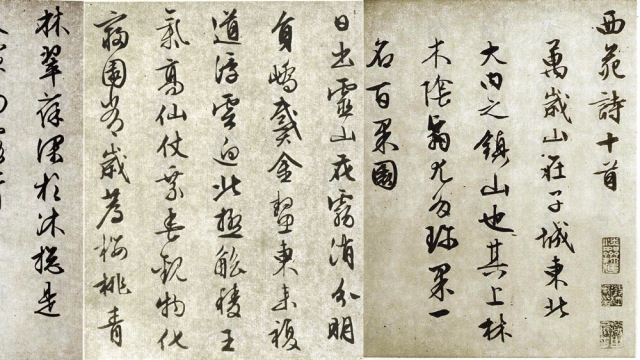 西苑詩十首
萬歲山在子城東北
大內之鎮山也其上林
木陰翳尤多珍果一
名百果園
日出靈山花霧消分明
員嶠戴金鰲東來複
道浮雲迥北極觚稜王
氣高仙仗乘春觀物化
寢園常歲薦櫻桃青
林翠葆深於沐總是